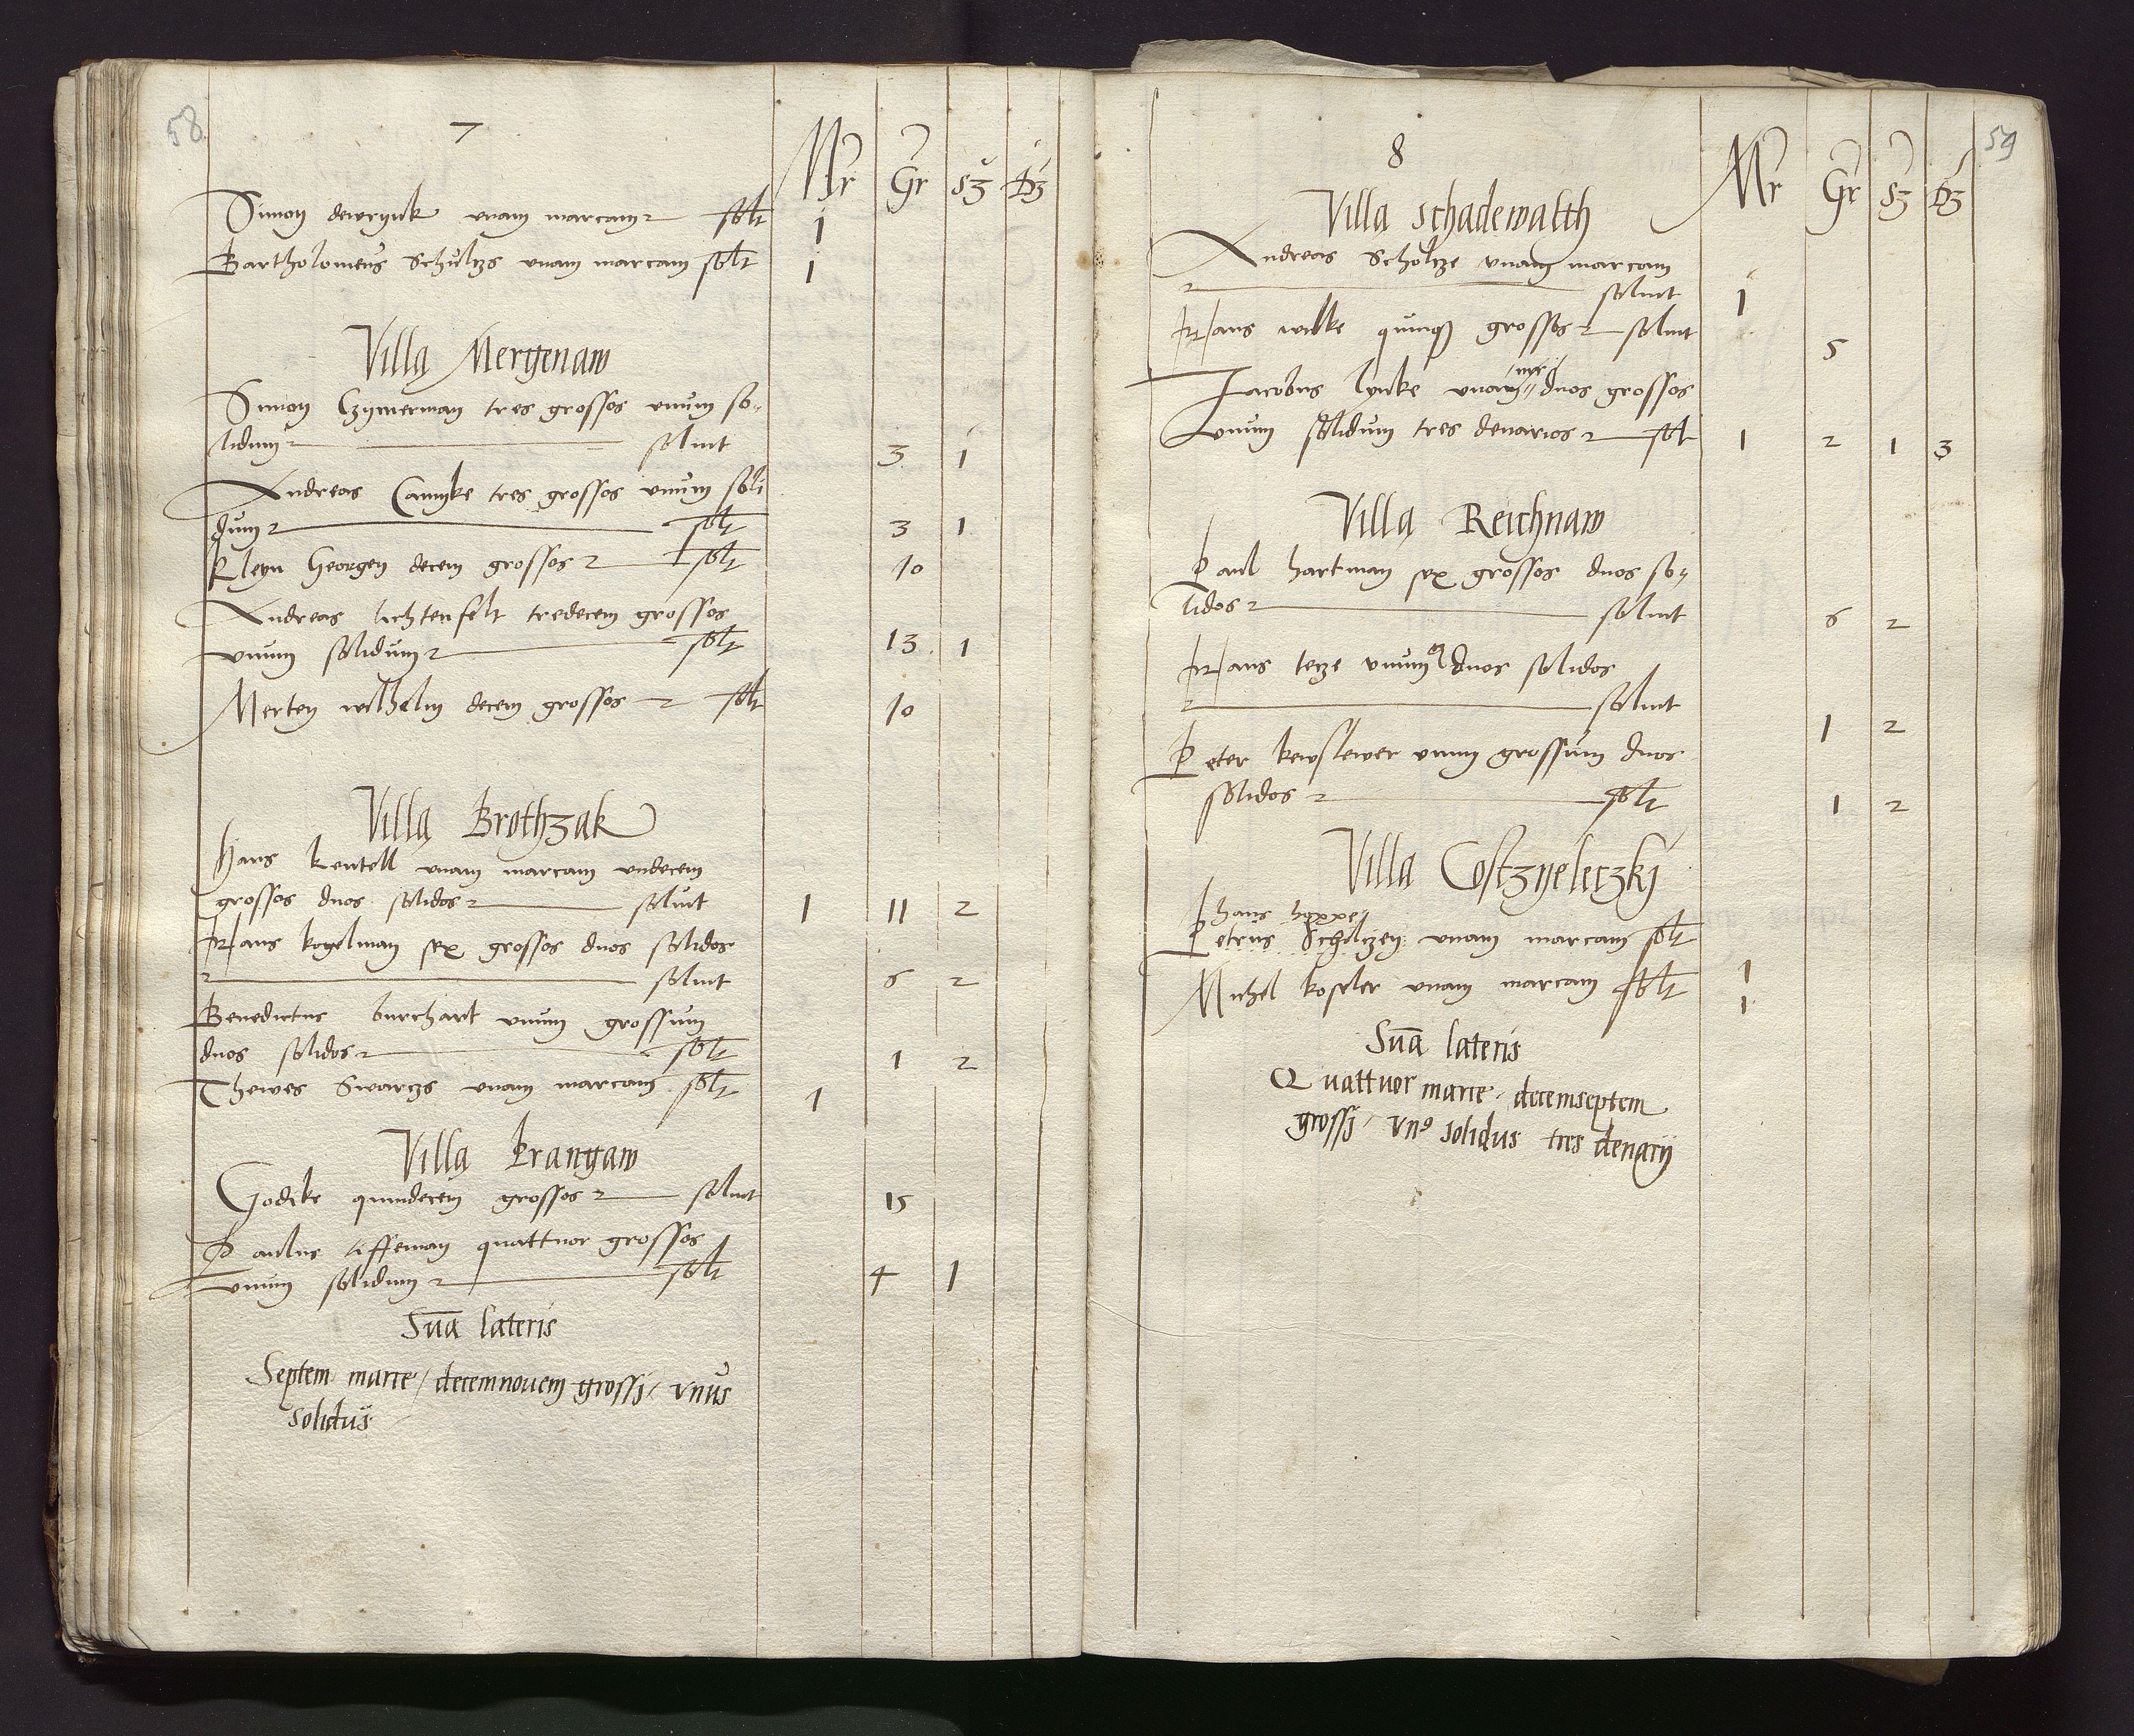 58
7
Mr Gr sz dz
Simon dewrynk unam marcam solt 1
Bartholomeus Schultzs unam marcam solt 1
Villa Mergenaw
Simon Czymerman tres grossos unum so-
lidum soluit 3 1
Andreas Camyke tres grossos unum soli
dum solt 3 1
Kleyn Georgen decem grossos solt 10
Andreas lichtenfelt tredecem grossos
unum solidum solt 13 1
Merten wilhelm decem grossos solt 10
Villa Brothzak
Hans Kentell unam marcam undecem
grossos duos solidos soluit 1 11 2
Hans kogelman sex grossos duos solidos
soluit 6 2
Benedictus burchart unum grossum
duos solidos solt 1 2
Thewes Swarczs unam marcam solt 1
Villa Krangaw
Godeke quindecem grossos soluit 15
Paulus tiffeman quattuor grossos
unum solidum solt 4 1
Sua lateris
Septem marce / decemnovem grossj / vnus
solidus
59
8
Mr Gr sz dz
Villa Schadewalth
Andreas Scholtze unam marcam
soluit 1
Hans wilke quinqz grossos soluit 5
Jacobus lynke unam mrc duos grossos
unum solidum tres denarios solt 1 2 1 3
Villa Reichnaw
Paul hartman sex grossos duos so-
lidos soluit 6 2
Hans tecze unum g duos solidos
soluit 1 2
Peter kewslewer unum grossum duos
solidos solt 1 2
Villa Costzyeleczkj
hans hoppe
Petrus Scholczen unam marcam solt 1
Michel kosseler unam marcam solt 1
Sua lateris
Quattuor marce decemseptem
grossj / vn9 solidus tres denarij